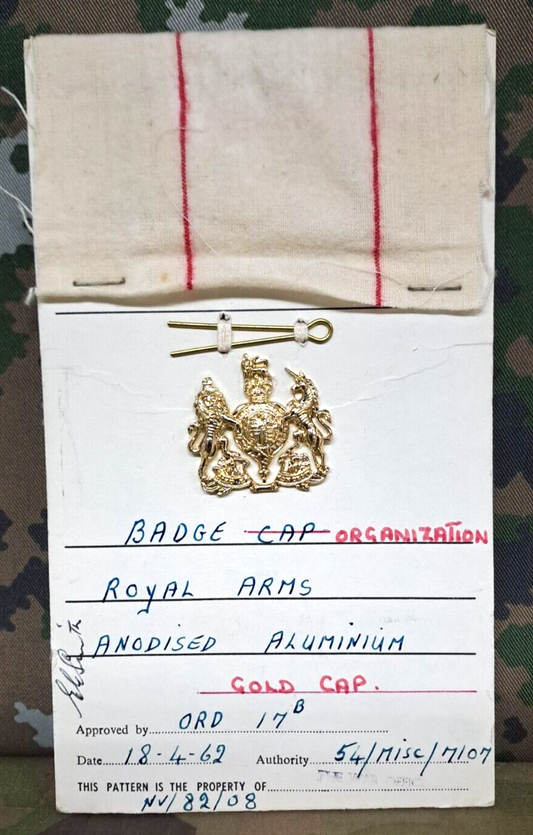 BADGE CAP ORGANIZATION
ROYAL ARMS
ANODISED ALUMINIUM
GOLD CAP.
Approved by ORD 17B
Date 18-4-62 Authority 54/Misc/7107
THIS PATTERN IS THE PROPERTY OF THE WAR OFFICE
NV/82/08